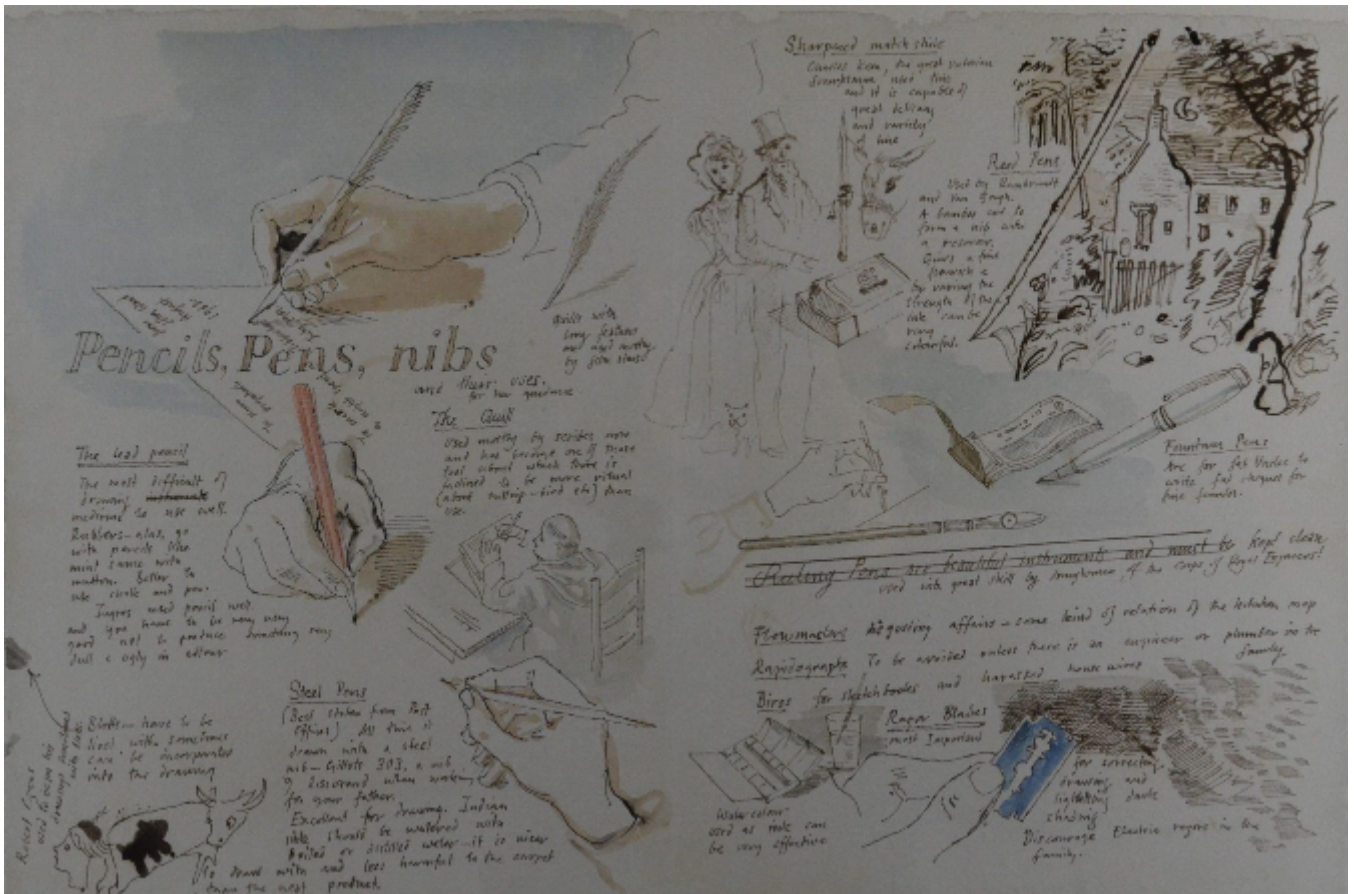 Pencils, Pens, nibs
and their uses.
for your guidance
Quills with
long feathers
are used mostly
by film stars!
The lead pencil
The most difficult of
drawing instruments
mediums to use well.
Rubbers - alas, go
with pencils like
mint sauce with
mutton. Better to
use chalk and pen.
Ingres used pencil well
and you have to be very very
good not to produce something very
dull & ugly in colour
The Quill
Used mostly by scribes now
and has become one of those
tool about which there is
inclined to be more ritual
(about cutting - bird etc) than
use.
Steel Pens
(Best stolen from Post
Offices) All this is
drawn with a steel
nib - Gillott 303, a nib
I discovered when working
for your father.
Excellent for drawing. Indian
ink should be watered with
boiled or distilled water - it is nicer
to draw with and less harmful to the carpet
than the neat product.
Blots - have to be
lived with sometimes
can be incorporated
into the drawing
used to wipe his
drawings
with
Sharpened match stick
Charles Keen, the great Victorian
draughtsman used this
and it is capable of
great delicacy
and variety
of line
Reed Pens
Used by Rembrandt
and Van Gogh.
A bamboo cut to
form a nib with
a reservoir.
Gives a fine
line & by varying the
strength of the
ink can be
very
colourful.
Fountain Pens
Are for fat Uncles to
write fat cheques for
fine females.
Ruling Pens are beautiful instruments and must be kept clean
used with great skill by draughtsmen of the Corps of Royal Engineers!
Flowmasters Disgusting affairs - some kind of relation of the
Rapidographs To be avoided unless there is an engineer or plumber in the
family.
Biros for sketchbooks and harassed house wives
Razor Blades
most Important
for correcting
drawing and
lightening dark
shading
Discourage Electric razors in the
family.
Water colour
used as ink can
be very effective